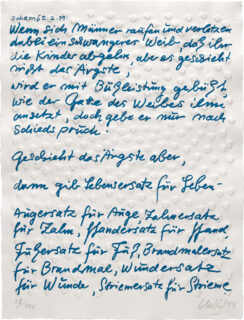 Schemot 2. M.
Wenn sich Männer raufen und verletzen
dabei ein schwangeres Weib daß ihr
die Kinder abgehn, aber es geschieht
nicht das Ärgste,
wird er mit Bußleistung gebüßt,
wie der Gatte des Weibes ihm
ansetzt, doch gebe er nur nach
Schiedspruch!
Geschieht das Ärgste aber,
dann gib Lebensersatz für Leben-
Augersatz für Auge, Zahnersatz
für Zahn, Handersatz für Hand
Fußersatz für Fuß, Brandmalersatz
für Brandmal, Wundersatz
für Wunde, Striemersatz für Strieme